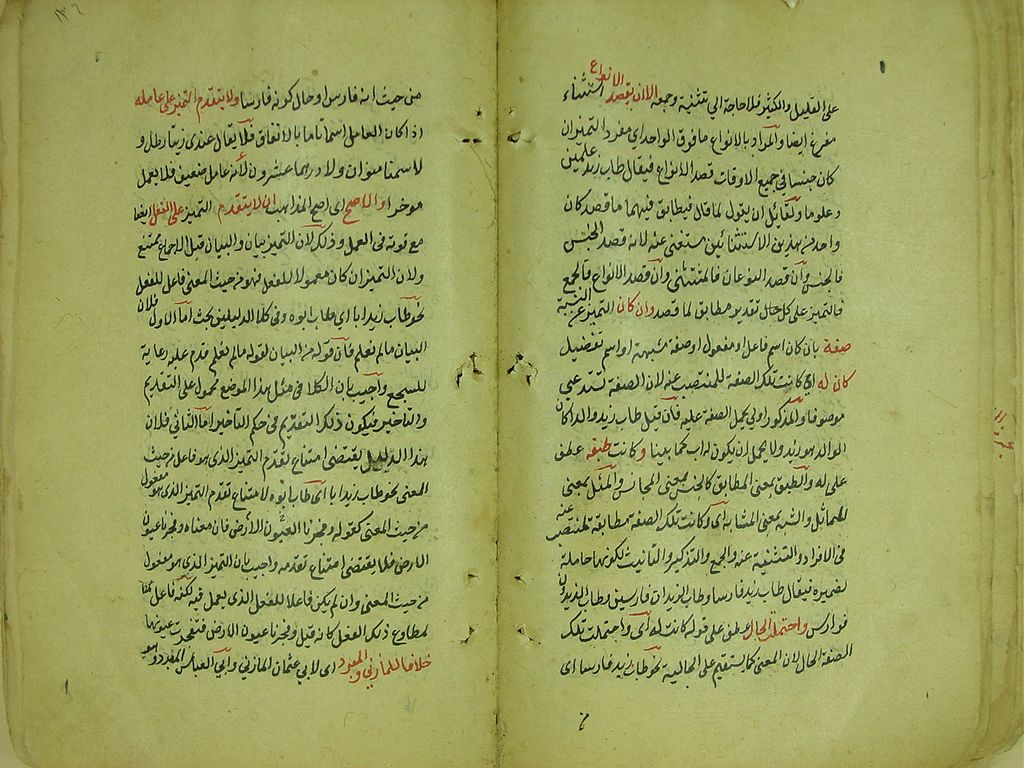 على القليل والكثير فلا حاجة الى تثنيته وجمعه الا ان يقصد الانواع استثناء
مفرغ ايضا والمراد بالانواع ما فوق الواحد اى مفرد التميز ان
كان جنسا فى جميع الاوقات قصد الانواع فيقال طاب زيد علمين
وعلوما ولقائل ان يقول لما قال فيطابق فيهما ما قصد كان
واحد من هذين الاستثنائين مستغنى عنه لانه قصد الجنس
فالجنس وان قصد النوعان فالمثنى وان قصد الانواع فالجمع
فالتميز على كل حال تقدير مطابق لما قصد وان كان التميز عن النسبة
صفة بان كان اسم فاعل او مفعول او صفة مشبهة او اسم تفضيل
كانت له اى كانت تلك الصفة للمنتصب عنه لان الصفة تستدعى
موصوفا والمذكور اولى بحمل الصفة عليه فان قيل طاب زيد والدا كان
الوالد هو زيد ولا يحمل ان يكون له اب كما بينا وكانت طبقه عطف
على له والطبق بمعنى المطابق كالجنس بمعنى المجانس والمثل بمعنى
المماثل والشبه بمعنى المشابه اى وكانت تلك الصفة مطابقة لمنتصب عنه
فى الافراد والتثنية عنه والجمع والتذكير والتانيث لكونها حاملة
لضميره فيقال طاب زيد فارسا وطاب الزيدان فارسين وطاب الزيدون
فوارس واحتملت الحال عطف على قوله كانت له اى واحتملت تلك
الصفة الحال لان المعنى كما يستقيم على الحالية نحو طاب زيد فارسا اى
من حيث انه فارس او حال كونه فارسا ولا يتقدم التميز على عامله
اذا كان العامل اسما تاما بالاتفاق فلا يقال عندى زيتا رطل و
لا سمنا منوان ولا درهما عشرون لانه عامل ضعيف فلا يعمل
موخرا والاصح اى اصح المذاهب ان لا يتقدم التميز على الفعل ايضا
مع قوته فى العمل وذلك لان التميز بيان والبيان قبل الاجماع ممتنع
ولان التميز ان كان معمولا للفعل فهو من حيث المعنى فاعل للفعل
نحو طاب زيد ابا اى طاب ابوه وفى كلا الدليلين بحث اما الاول فلان
البيان ما لم نعلم فان قوله من البيان لقوله ما لم نعلم قدم عليه رعاية
للسجع واجيب بان الكلام فى مثل هذا الموضع محمول على التقديم
والتأخير فيكون ذلك التقديم فى حكم التأخير اما الثانى فلان
هذا الدليل يقتضى امتناع تقدم التميز الذى هو فاعل من حيث
المعنى نحو طاب زيد ابا اى طاب ابوه لا امتناع تقدم التميز الذى هو مفعول
من حيث المعنى كقوله وفجرنا العيون الارض فان معناه وفجرنا عيون
الارض فلا يقتضى امتناع تقدمه واجيب بان التميز الذى هو مفعول
من حيث المعنى وان لم يكن فاعلا للفعل الذى يعمل فيه لكنه فاعل
لمطاوع ذلك الفعل كانه قيل وفجرنا عيون الارض فتفجرت عيونها
خلافا للمازنى والمبرد اى لابى عثمان المازنى وابى العباس المبرد